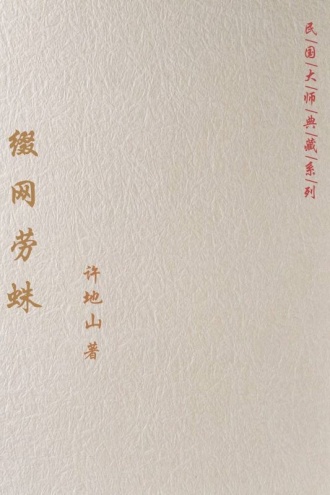 民|国|大|师|典|藏|系|列
缀网劳蛛
许地山著